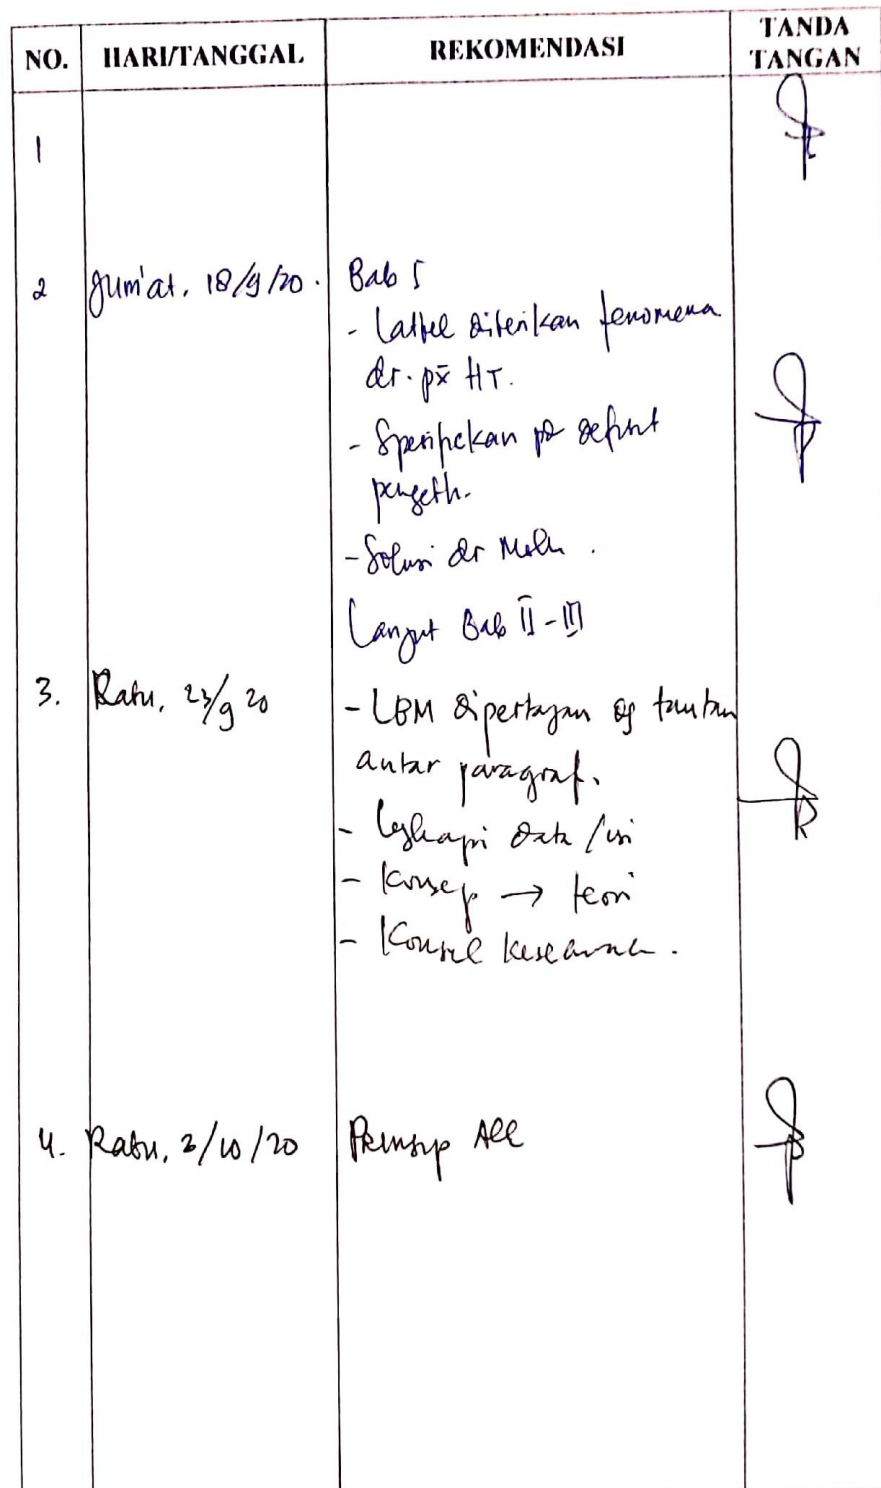 NO. HARI/TANGGAL REKOMENDASI TANDA TANGAN
1
2 Jum'at, 18/9/20. Bab I
- diberikan fenomena
dr. px HT.
- Spesifikkan pd defisit
pengeth.
- Solusi dr
Lanjut Bab II - III
3. Rabu, 23/9 20 - LBM dipertajam dg tautan
antar paragraf.
- Lengkapi data / isi
- Konsep → teori
- Konsul
4. Rabu, /10/20 Prinsip Acc